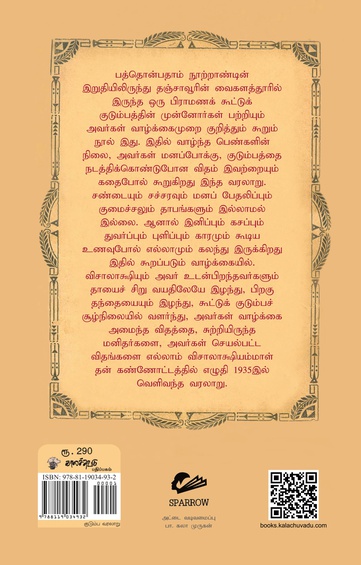 பத்தொன்பதாம் நூற்றாண்டின்
இறுதியிலிருந்து தஞ்சாவூரின் வைகளத்தூரில்
இருந்த ஒரு பிராமணக் கூட்டுக்
குடும்பத்தின் முன்னோர்கள் பற்றியும்
அவர்கள் வாழ்க்கைமுறை குறித்தும் கூறும்
நூல் இது. இதில் வாழ்ந்த பெண்களின்
நிலை, அவர்கள் மனப்போக்கு, குடும்பத்தை
நடத்திக்கொண்டுபோன விதம் இவற்றையும்
கதைபோல் கூறுகிறது இந்த வரலாறு.
சண்டையும் சச்சரவும் மனப் பேதலிப்பும்
குமைச்சலும் தாபங்களும் இல்லாமல்
இல்லை. ஆனால் இனிப்பும் கசப்பும்
துவர்ப்பும் புளிப்பும் காரமும் கூடிய
உணவுபோல் எல்லாமும் கலந்து இருக்கிறது
இதில் கூறப்படும் வாழ்க்கையில்.
விசாலாக்ஷியும் அவர் உடன்பிறந்தவர்களும்
தாயைச் சிறு வயதிலேயே இழந்து, பிறகு
தந்தையையும் இழந்து, கூட்டுக் குடும்பச்
சூழ்நிலையில் வளர்ந்து, அவர்கள் வாழ்க்கை
அமைந்த விதத்தை, சுற்றியிருந்த
மனிதர்களை, அவர்கள் செயல்பட்ட
விதங்களை எல்லாம் விசாலாக்ஷியம்மாள்
தன் கண்ணோட்டத்தில் எழுதி 1935இல்
வெளிவந்த வரலாறு.
ரூ. 290
காலச்சுவடு
பதிப்பகம்
ISBN: 978-81-19034-93-2
00001
9788119034932
குடும்ப வரலாறு
SPARROW
அட்டை வடிவமைப்பு
பா. கலா முருகன்
books.kalachuvadu.com